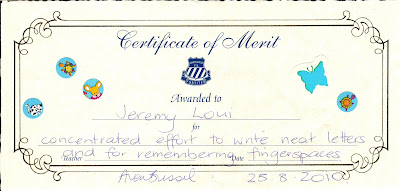 Certificate of Merit
Awarded to
Jeremy Loui
for
concentrated effort to write neat letters
and for remembering fingerspaces
Teacher Date
25·8·2010